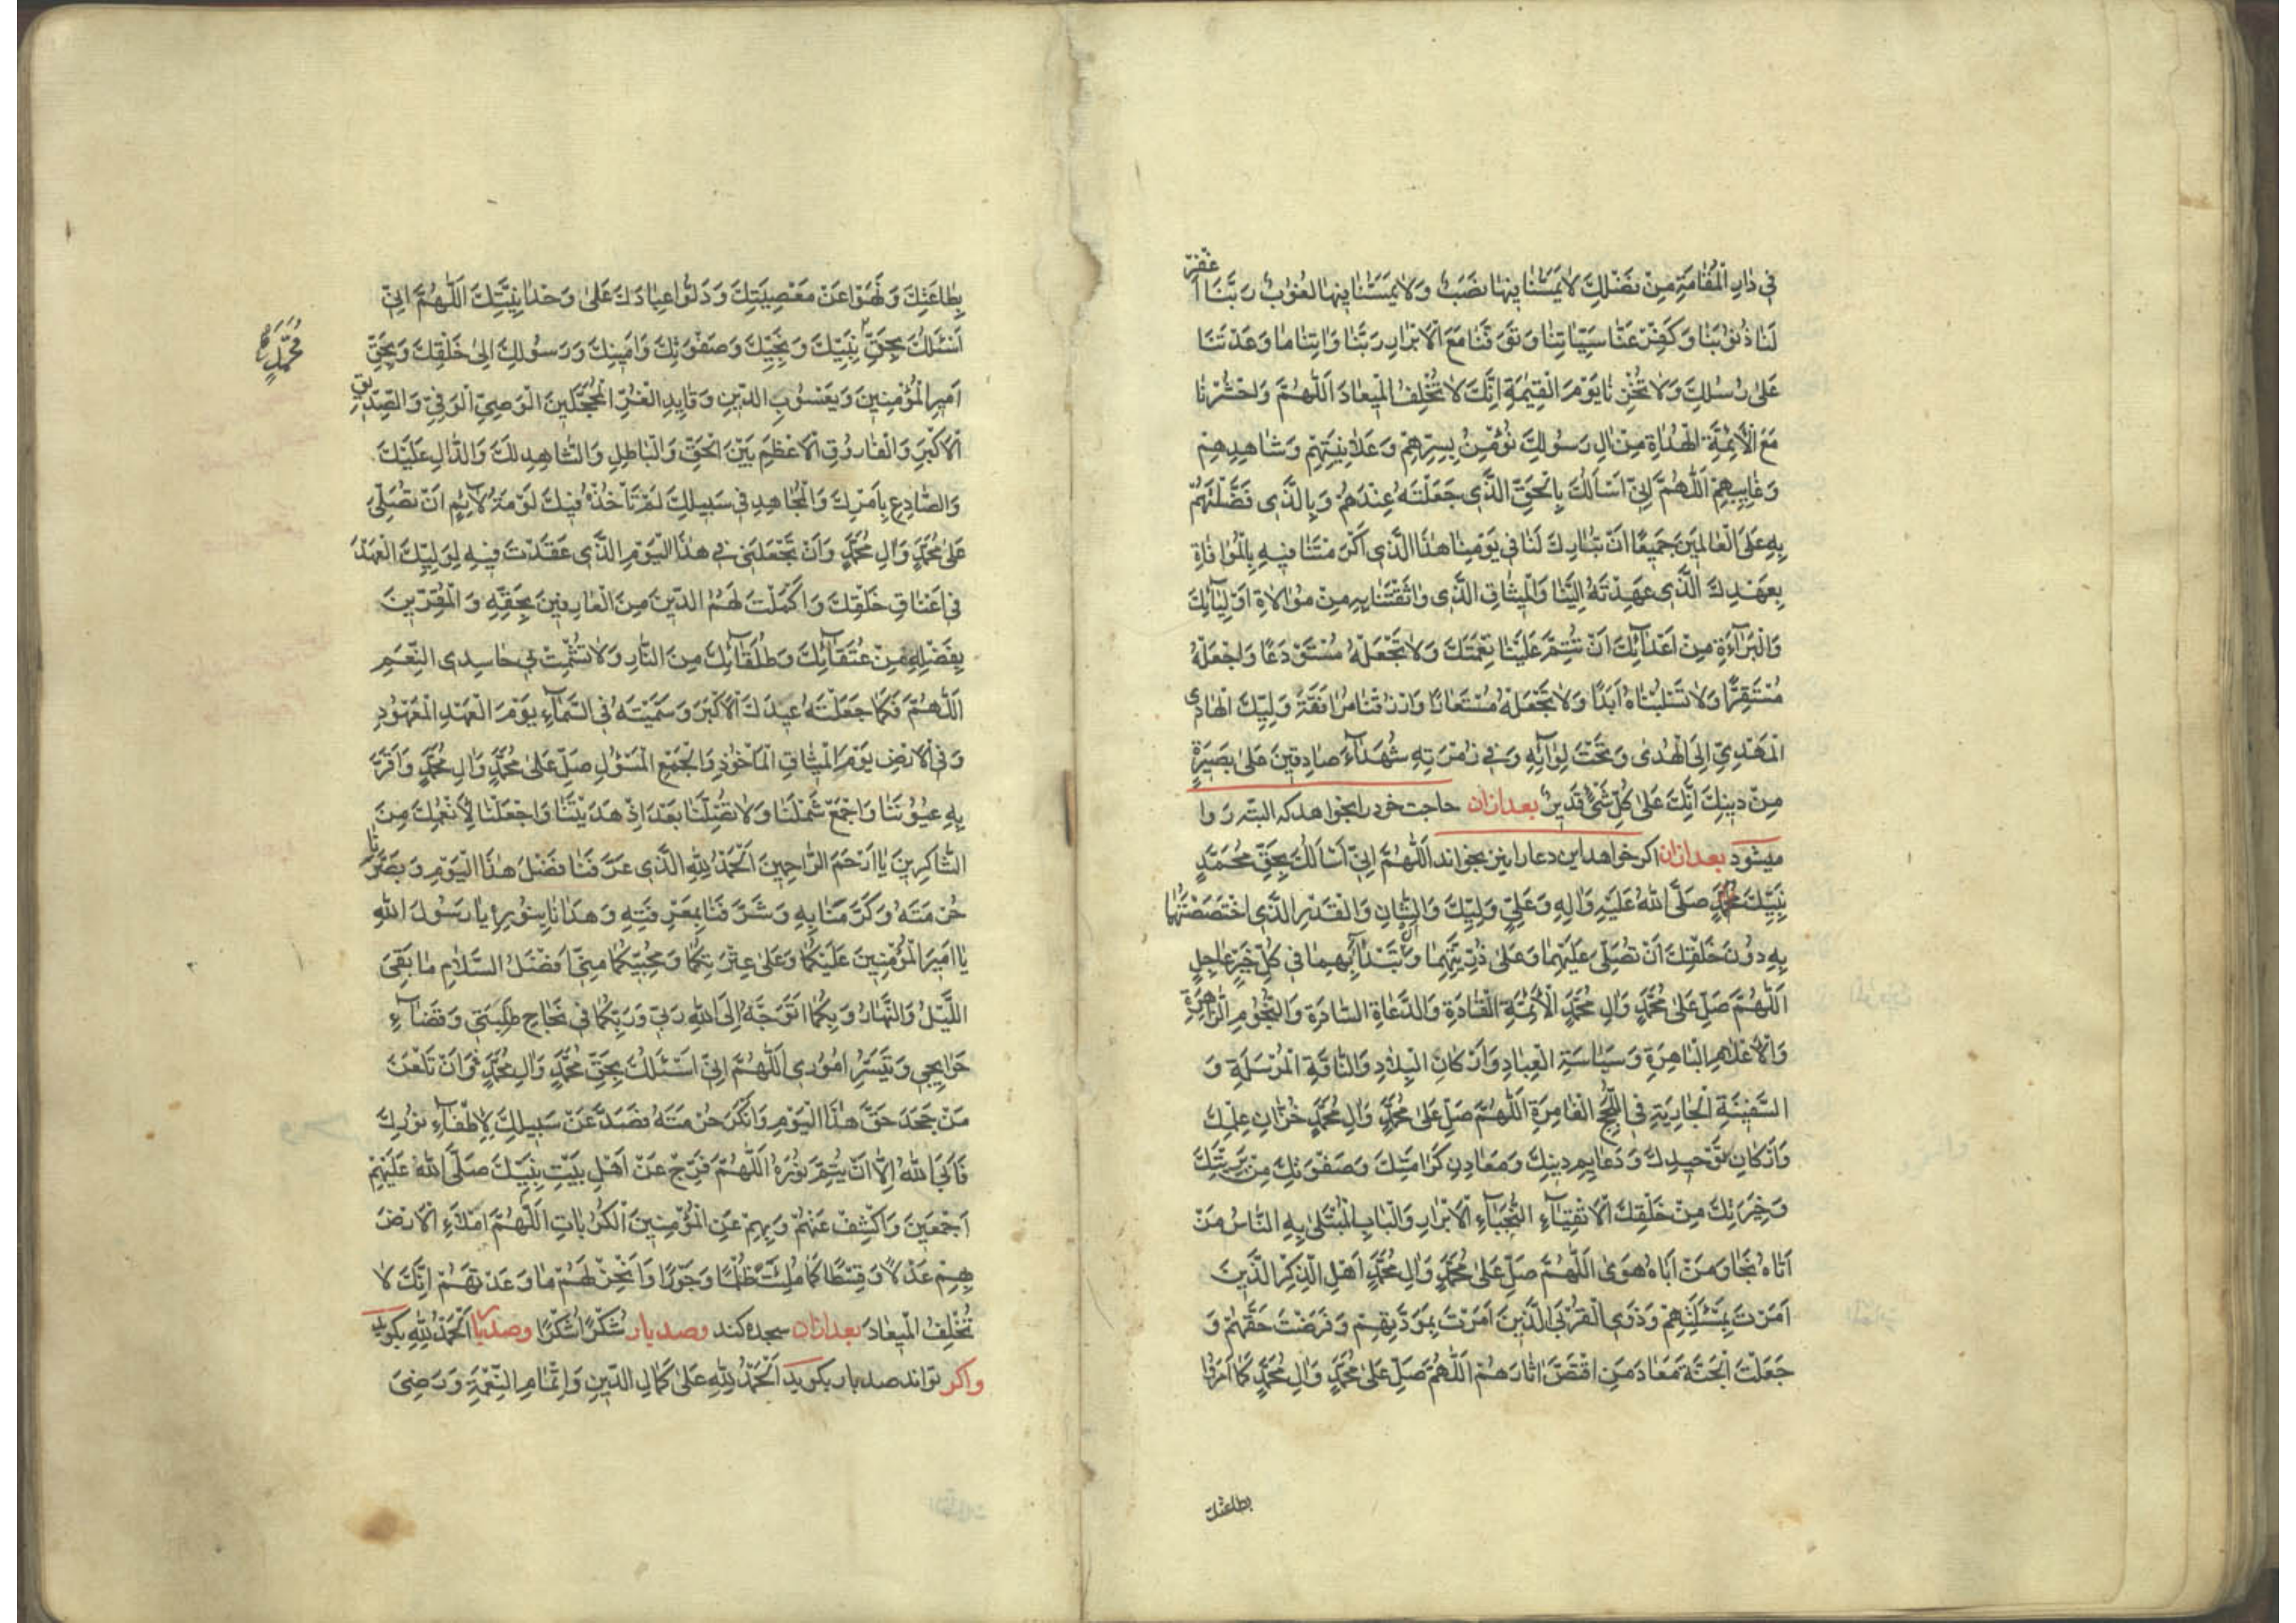 فِي دٰارِ الْمُقٰامَةِ مِنْ فَضْلِكَ لاٰ يَمَسُّنٰا فِيهٰا نَصَبٌ وَلاٰ يَمَسُّنٰا فِيهٰا لُغُوبٌ رَبَّنَا اغْفِرْ
لَنٰا ذُنُوبَنٰا وَكَفِّرْ عَنّٰا سَيِّئٰاتِنٰا وَتَوَفَّنٰا مَعَ الْاَبْرٰارِ رَبَّنٰا وَاٰتِنٰا مٰا وَعَدْتَنٰا
عَلىٰ رُسُلِكَ وَلاٰ تُخْزِنٰا يَوْمَ الْقِيٰمَةِ اِنَّكَ لاٰ تُخْلِفُ الْمِيعٰادَ اَللّٰهُمَّ وَاحْشُرْنٰا
مَعَ الْاَئِمَّةِ الْهُدٰاةِ مِنْ اٰلِ رَسُولِكَ نُؤْمِنُ بِسِرِّهِمْ وَعَلاٰنِيَتِهِمْ وَشٰاهِدِهِمْ
وَغٰايِبِهِمْ اَللّٰهُمَّ اِنِّي اَسْاَلُكَ بِالْحَقِّ الَّذِي جَعَلْتَهُ عِنْدَهُمْ وَبِالَّذِي فَضَّلْتَهُمْ
بِهِ عَلَى الْعٰالَمِينَ جَمِيعًا اَنْ تُبٰارِكَ لَنٰا فِي يَوْمِنٰا هٰذَا الَّذِي اَكْرَمْتَنٰا فِيهِ بِالْمُوٰافٰاةِ
بِعَهْدِكَ الَّذِي عَهِدْتَهُ اِلَيْنٰا وَالْمِيثٰاقِ الَّذِي وٰاثَقْتَنٰا بِهِ مِنْ مُوٰالاٰةِ اَوْلِيٰآئِكَ
وَالْبَرٰآءَةِ مِنْ اَعْدٰآئِكَ اَنْ تُتِمَّ عَلَيْنٰا نِعْمَتَكَ وَلاٰ تَجْعَلْهُ مُسْتَوْدَعًا وَاجْعَلْهُ
مُسْتَقِرًّا وَلاٰ تَسْلُبْنٰاهُ اَبَدًا وَلاٰ تَجْعَلْهُ مُسْتَعٰارًا وَارْزُقْنٰا مُرٰافَقَةَ وَلِيِّكَ الْهٰادِي
الْمَهْدِيِّ اِلَى الْهُدىٰ وَتَحْتَ لِوٰآئِهِ وَفِي زُمْرَتِهِ شُهَدٰآءَ صٰادِقِينَ عَلىٰ بَصِيَرةٍ
مِنْ دِينِكَ اِنَّكَ عَلىٰ كُلِّ شَيْءٍ قَدِيرٌ بعد ازان حاجت خود را بخواهد كه البته روا
ميشود بعد ازان اكر خواهد اين دعا را نيز بخواند اَللّٰهُمَّ اِنِّي اَسْاَلُكَ بِحَقِّ مُحَمَّدٍ
نَبِيِّكَ صَلَّى اللّٰهُ عَلَيْهِ وَاٰلِهِ وَعَلِيٍّ وَلِيِّكَ وَالشَّاْنِ وَالْقَدْرِ الَّذِي اخْتَصَصْتَهُمٰا
بِهِ دُونَ خَلْقِكَ اَنْ تُصَلِّيَ عَلَيْهِمٰا وَعَلىٰ ذُرِّيَّتِهِمٰا وَاَنْ تَبْدَاَ بِهِمٰا فِي كُلِّ خَيْرٍ عٰاجِلٍ
اَللّٰهُمَّ صَلِّ عَلىٰ مُحَمَّدٍ وَاٰلِ مُحَمَّدٍ الْاَئِمَّةِ الْقٰادَةِ وَالدُّعٰاةِ السّٰادَةِ وَالنُّجُومِ الزّٰاهِرَةِ
وَالْاَعْلاٰمِ الْبٰاهِرَةِ وَسٰاسَةِ الْعِبٰادِ وَاَرْكٰانِ الْبِلاٰدِ وَالنّٰاقَةِ الْمُرْسَلَةِ وَ
السَّفِينَةِ الْجٰارِيَةِ فِي اللُّجَجِ الْغٰامِرَةِ اَللّٰهُمَّ صَلِّ عَلىٰ مُحَمَّدٍ وَاٰلِ مُحَمَّدٍ خُزّٰانِ عِلْمِكَ
وَاَرْكٰانِ تَوْحِيدِكَ وَدَعٰايِمِ دِينِكَ وَمَعٰادِنِ كَرٰامَتِكَ وَصَفْوَتِكَ مِنْ بَرِيَّتِكَ
وَخِيَرَتِكَ مِنْ خَلْقِكَ الْاَتْقِيٰآءِ النُّجَبٰآءِ الْاَبْرٰارِ وَالْبٰابِ الْمُبْتَلىٰ بِهِ النّٰاسُ مَنْ
اَتٰاهُ نَجٰا وَمَنْ اَبٰاهُ هَوىٰ اَللّٰهُمَّ صَلِّ عَلىٰ مُحَمَّدٍ وَاٰلِ مُحَمَّدٍ اَهْلِ الذِّكْرِ الَّذِينَ
اَمَرْتَ بِمَسْئَلَتِهِمْ وَذَوِي الْقُرْبَى الَّذِينَ اَمَرْتَ بِمَوَدَّتِهِمْ وَفَرَضْتَ حَقَّهُمْ وَ
جَعَلْتَ الْجَنَّةَ مَعٰادَ مَنِ اقْتَصَّ اٰثٰارَهُمْ اَللّٰهُمَّ صَلِّ عَلىٰ مُحَمَّدٍ وَاٰلِ مُحَمَّدٍ كَمٰا اَمَرُوا
بطاعتك
بِطٰاعَتِكَ وَنَهَوْا عَنْ مَعْصِيَتِكَ وَدَلُّوا عِبٰادَكَ عَلىٰ وَحْدٰانِيَّتِكَ اَللّٰهُمَّ اِنِّي
اَسْئَلُكَ بِحَقِّ نَبِيِّكَ وَنَجِيِّكَ وَصَفْوَتِكَ وَاَمِينِكَ وَرَسُولِكَ اِلىٰ خَلْقِكَ وَبِحَقِّ
مُحَمَّدٍ
اَمِيرِ الْمُؤْمِنِينَ وَيَعْسُوبِ الدِّينِ وَقٰايِدِ الْغُرِّ الْمُحَجَّلِينَ الْوَصِيِّ الْوَفِيِّ وَالصِّدِّيقِ
الْاَكْبَرِ وَالْفٰارُوقِ الْاَعْظَمِ بَيْنَ الْحَقِّ وَالْبٰاطِلِ وَالشّٰاهِدِ لَكَ وَالدّٰالِّ عَلَيْكَ
وَالصّٰادِعِ بِاَمْرِكَ وَالْمُجٰاهِدِ فِي سَبِيلِكَ لَمْ تَاْخُذْهُ فِيكَ لَوْمَةُ لاٰئِمٍ اَنْ تُصَلِّيَ
عَلىٰ مُحَمَّدٍ وَاٰلِ مُحَمَّدٍ وَاَنْ تَجْعَلَنِي فِي هٰذَا الْيَوْمِ الَّذِي عَقَدْتَ فِيهِ لِوَلِيِّكَ الْعَهْدَ
فِي اَعْنٰاقِ خَلْقِكَ وَاَكْمَلْتَ لَهُمُ الدِّينَ مِنَ الْعٰارِفِينَ بِحَقِّهِ وَالْمُقِرِّينَ
بِفَضْلِهِ مِنْ عُتَقٰآئِكَ وَطُلَقٰآئِكَ مِنَ النّٰارِ وَلاٰ تُشْمِتْ بِي حٰاسِدِي النِّعَمِ
اَللّٰهُمَّ فَكَمٰا جَعَلْتَهُ عِيدَكَ الْاَكْبَرَ وَسَمَّيْتَهُ فِي السَّمٰآءِ يَوْمَ الْعَهْدِ الْمَعْهُودِ
وَفِي الْاَرْضِ يَوْمَ الْمِيثٰاقِ الْمَاْخُوذِ وَالْجَمْعِ الْمَسْؤُلِ صَلِّ عَلىٰ مُحَمَّدٍ وَاٰلِ مُحَمَّدٍ وَاَقْرِرْ
بِهِ عُيُونَنٰا وَاجْمَعْ شَمْلَنٰا وَلاٰ تُضِلَّنٰا بَعْدَ اِذْ هَدَيْتَنٰا وَاجْعَلْنٰا لِاَنْعُمِكَ مِنَ
الشّٰاكِرِينَ يٰا اَرْحَمَ الرّٰاحِمِينَ اَلْحَمْدُ لِلّٰهِ الَّذِي عَرَّفَنٰا فَضْلَ هٰذَا الْيَوْمِ وَبَصَّرَنٰا
حُرْمَتَهُ وَكَرَّمَنٰا بِهِ وَشَرَّفَنٰا بِمَعْرِفَتِهِ وَهَدٰانٰا بِنُورِهِ يٰا رَسُولَ اللّٰهِ
يٰا اَمِيرَ الْمُؤْمِنِينَ عَلَيْكُمٰا وَعَلىٰ عِتْرَتِكُمٰا وَمُحِبِّيكُمٰا مِنِّي اَفْضَلُ السَّلاٰمِ مٰا بَقِيَ
اللَّيْلُ وَالنَّهٰارُ وَبِكُمٰا اَتَوَجَّهُ اِلَى اللّٰهِ رَبِّي وَرَبِّكُمٰا فِي نَجٰاحِ طَلِبَتِي وَقَضٰآءِ
حَوٰايِجِي وَتَيْسِّرِ اُمُورِي اَللّٰهُمَّ اِنِّي اَسْئَلُكَ بِحَقِّ مُحَمَّدٍ وَاٰلِ مُحَمَّدٍ وَاَنْ تَلْعَنَ
مَنْ جَحَدَ حَقَّ هٰذَا الْيَوْمِ وَاَنْكَرَ حُرْمَتَهُ فَصَدَّ عَنْ سَبِيلِكَ لِاِطْفٰآءِ نُورِكَ
فَاَبَى اللّٰهُ اِلاّٰ اَنْ يُتِمَّ نُورَهُ اَللّٰهُمَّ فَرِّجْ عَنْ اَهْلِ بَيْتِ نَبِيِّكَ صَلَّى اللّٰهُ عَلَيْهِمْ
اَجْمَعِينَ وَاكْشِفْ عَنْهُمْ وَبِهِمْ عَنِ الْمُؤْمِنِينَ الْكُرُبٰاتِ اَللّٰهُمَّ امْلَاءِ الْاَرْضَ
بِهِمْ عَدْلًا وَقِسْطًا كَمٰا مُلِئَتْ ظُلْمًا وَجَوْرًا وَاَنْجِزْ لَهُمْ مٰا وَعَدْتَهُمْ اِنَّكَ لاٰ
تُخْلِفُ الْمِيعٰادَ بعد ازان سجده كند وصد بار شُكْرًا شُكْرًا وصد بار اَلْحَمْدُ لِلّٰهِ بكويد
واكر تواند صد بار بكويد اَلْحَمْدُ لِلّٰهِ عَلىٰ كَمٰالِ الدِّينِ وَاِتْمٰامِ النِّعْمَةِ وَرَضِيَ